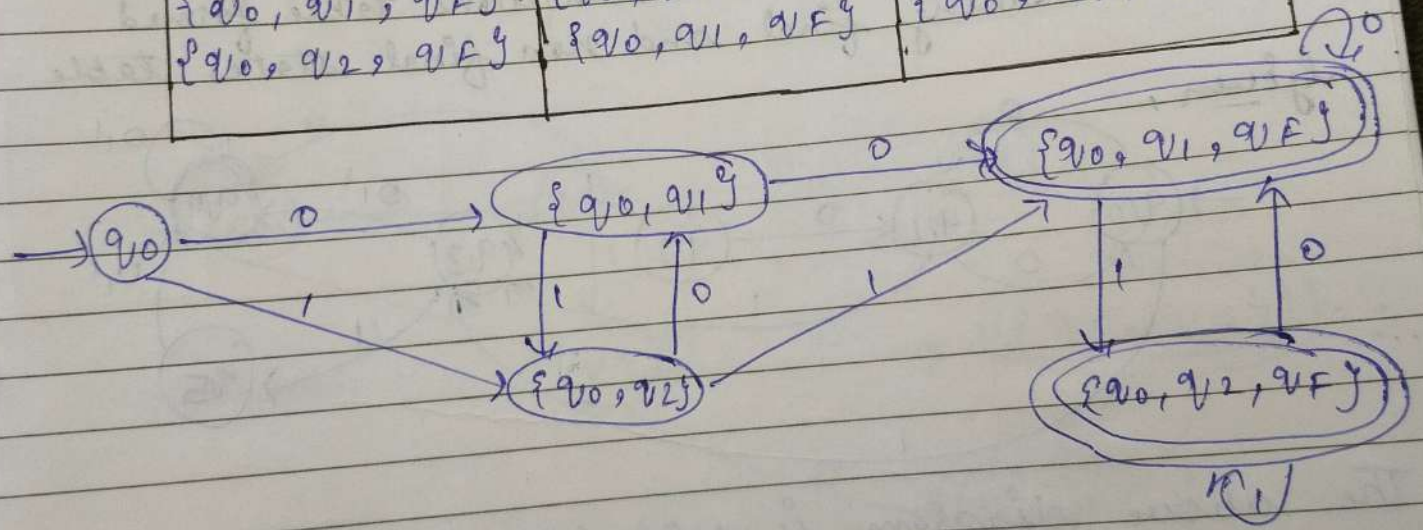 {q0, q1, qF}
{q0, q2, qF} {q0, q1, qF}
0
{q0, q1, qF}
0
{q0, q1}
0
q0
1 0 1 1 0
1
{q0, q2}
{q0, q2, qF}
1